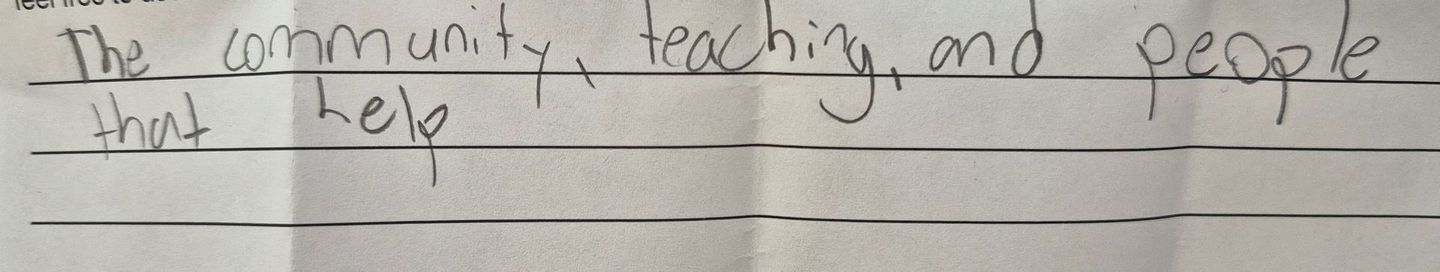 The community, teaching, and people
that help